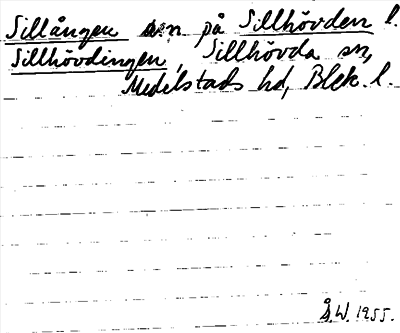 Sillången s:n på Sillhövden l.
Sillhövdingen, Sillhövda sn,
Medelstads hd, Blek. l.
Å.W. 1955.